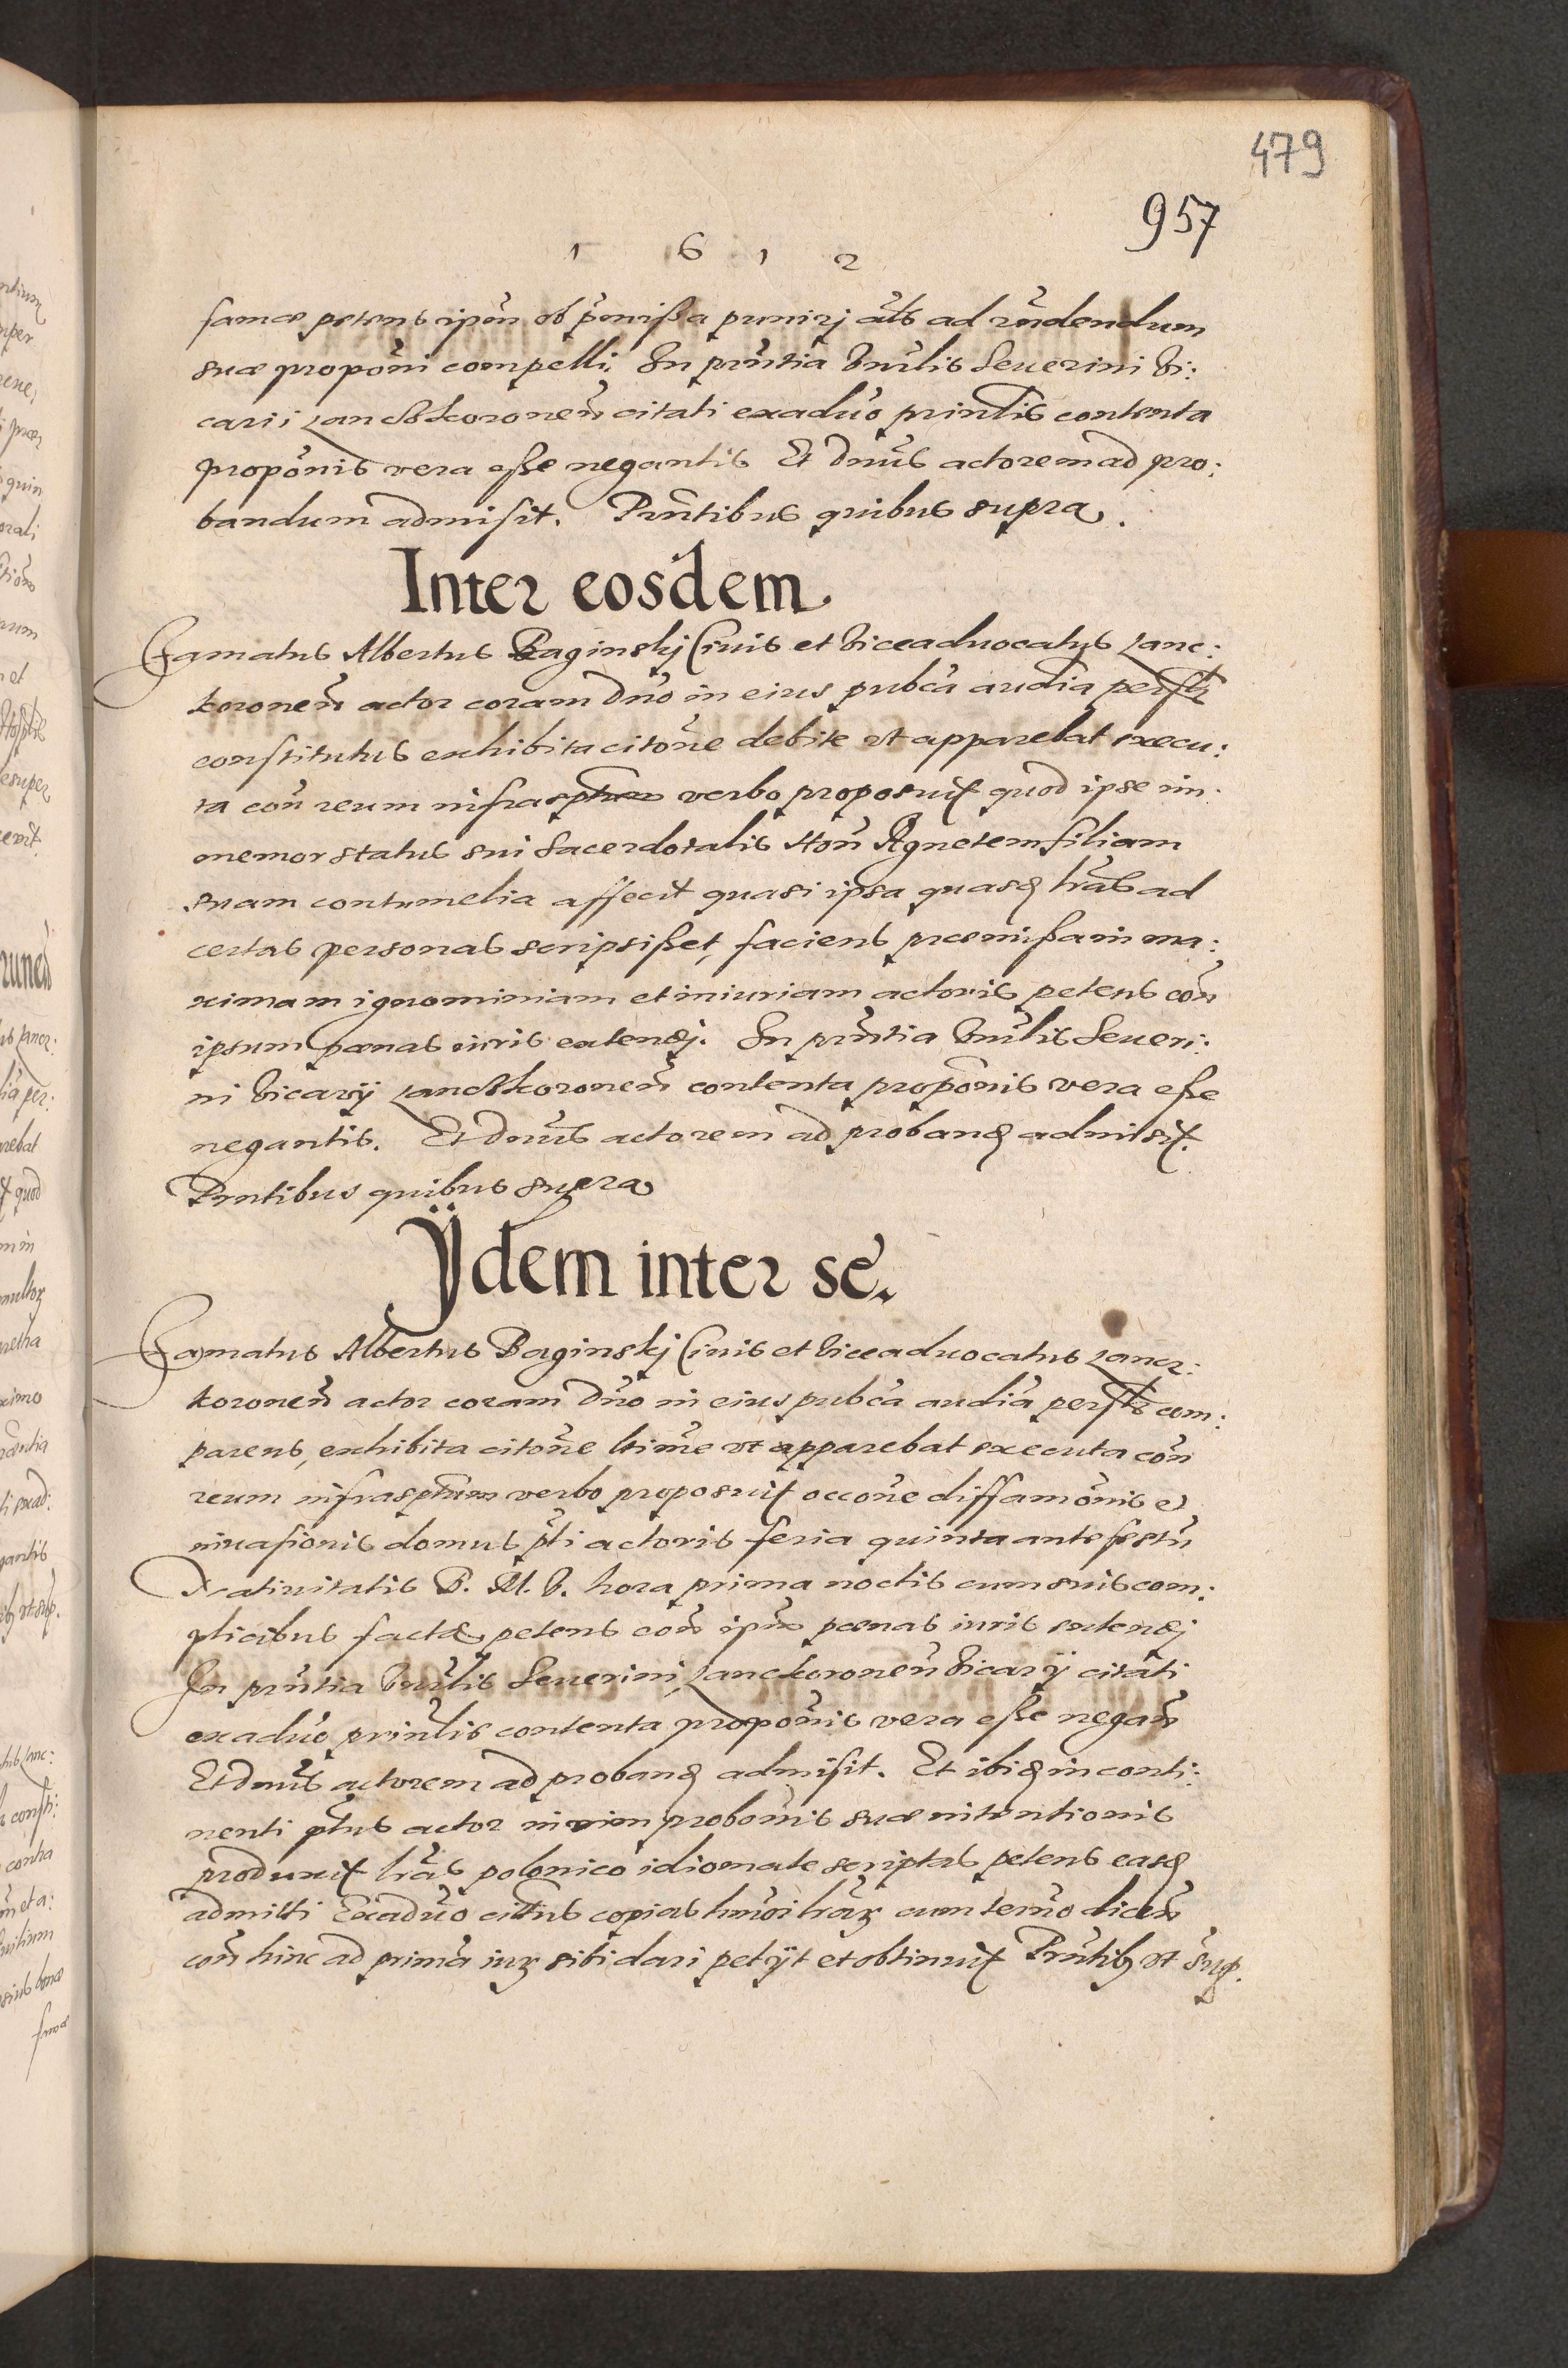 479
957
1 6 1 2
famæ petens ipūm ob p̄missa punirj al̄s ad rn̄dendum
suæ propōni compelli. In prn̄tia Vn̄lis Seuerini Vi:
carii Lanckkoronen̄ citati ex aduō prin̄lis contenta
propōnis vera esse negantis Et Dn̄us actorem ad pro:
bandum admisit. Prn̄tibus quibus supra.
Inter eosdem
Famatus Albertus Baginskj Ciuis et Viceaduocatus Lanc:
koronen̄ actor coram Dn̄o in eius pub̄ca aud̄ia per
constitutus exhibita citōne debite vt apparebat execu:
ta con̄ reum infrasptum verbo proposuit quod ipse im
memor status sui sacerdotalis Hon̄ Agnetem filiam
suam contumelia affecit quasi ipsa quasd lrās ad
certas personas scripsisset, faciens præmissa in ma:
ximam ignominiam et iniuriam actoris petens con̄
ipsum pœnas iuris extendj. In prn̄tia Vn̄lis Seueri:
ni Vicarij Lanckkoronen̄ contenta propōnis vera esse
negantis. Et Dn̄us actorem ad proband admisit.
Prn̄tibus quibus supra
Ÿdem inter se.
Famatus Albertus Baginskj Ciuis et Viceaduocatus Lanc:
koronen̄ actor coram Dn̄o in eius pub̄ca aud̄ia per com:
parens, exhibita citōne ltime vt apparebat executa con̄
reum infrasptum verbo proposuit occōne diffamōnis et
inuasionis domus p̄ti actoris feria quinta ante festū
Natiuitatis B. M. V. hora prima noctis cum suis com:
plicibus factæ petens con̄ ipūm pœnas iuris extendj
In prn̄tia Vn̄lis Seuerini Lanckoronen̄ Vicarij citati
ex aduō prin̄lis contenta propōnis vera esse negan̄
Et Dn̄us actorem ad proband admisit. Et ibid in conti:
nenti p̄tus actor in vim probōnis suæ intentionis
produxit lrās polonico idiomate scriptas petens easd
admitti Ex aduō citatus copias hmōi lrār cum termō dicen̄
con̄ hinc ad primā iur sibi dari petijt et obtinuit Prn̄tib vt sup.